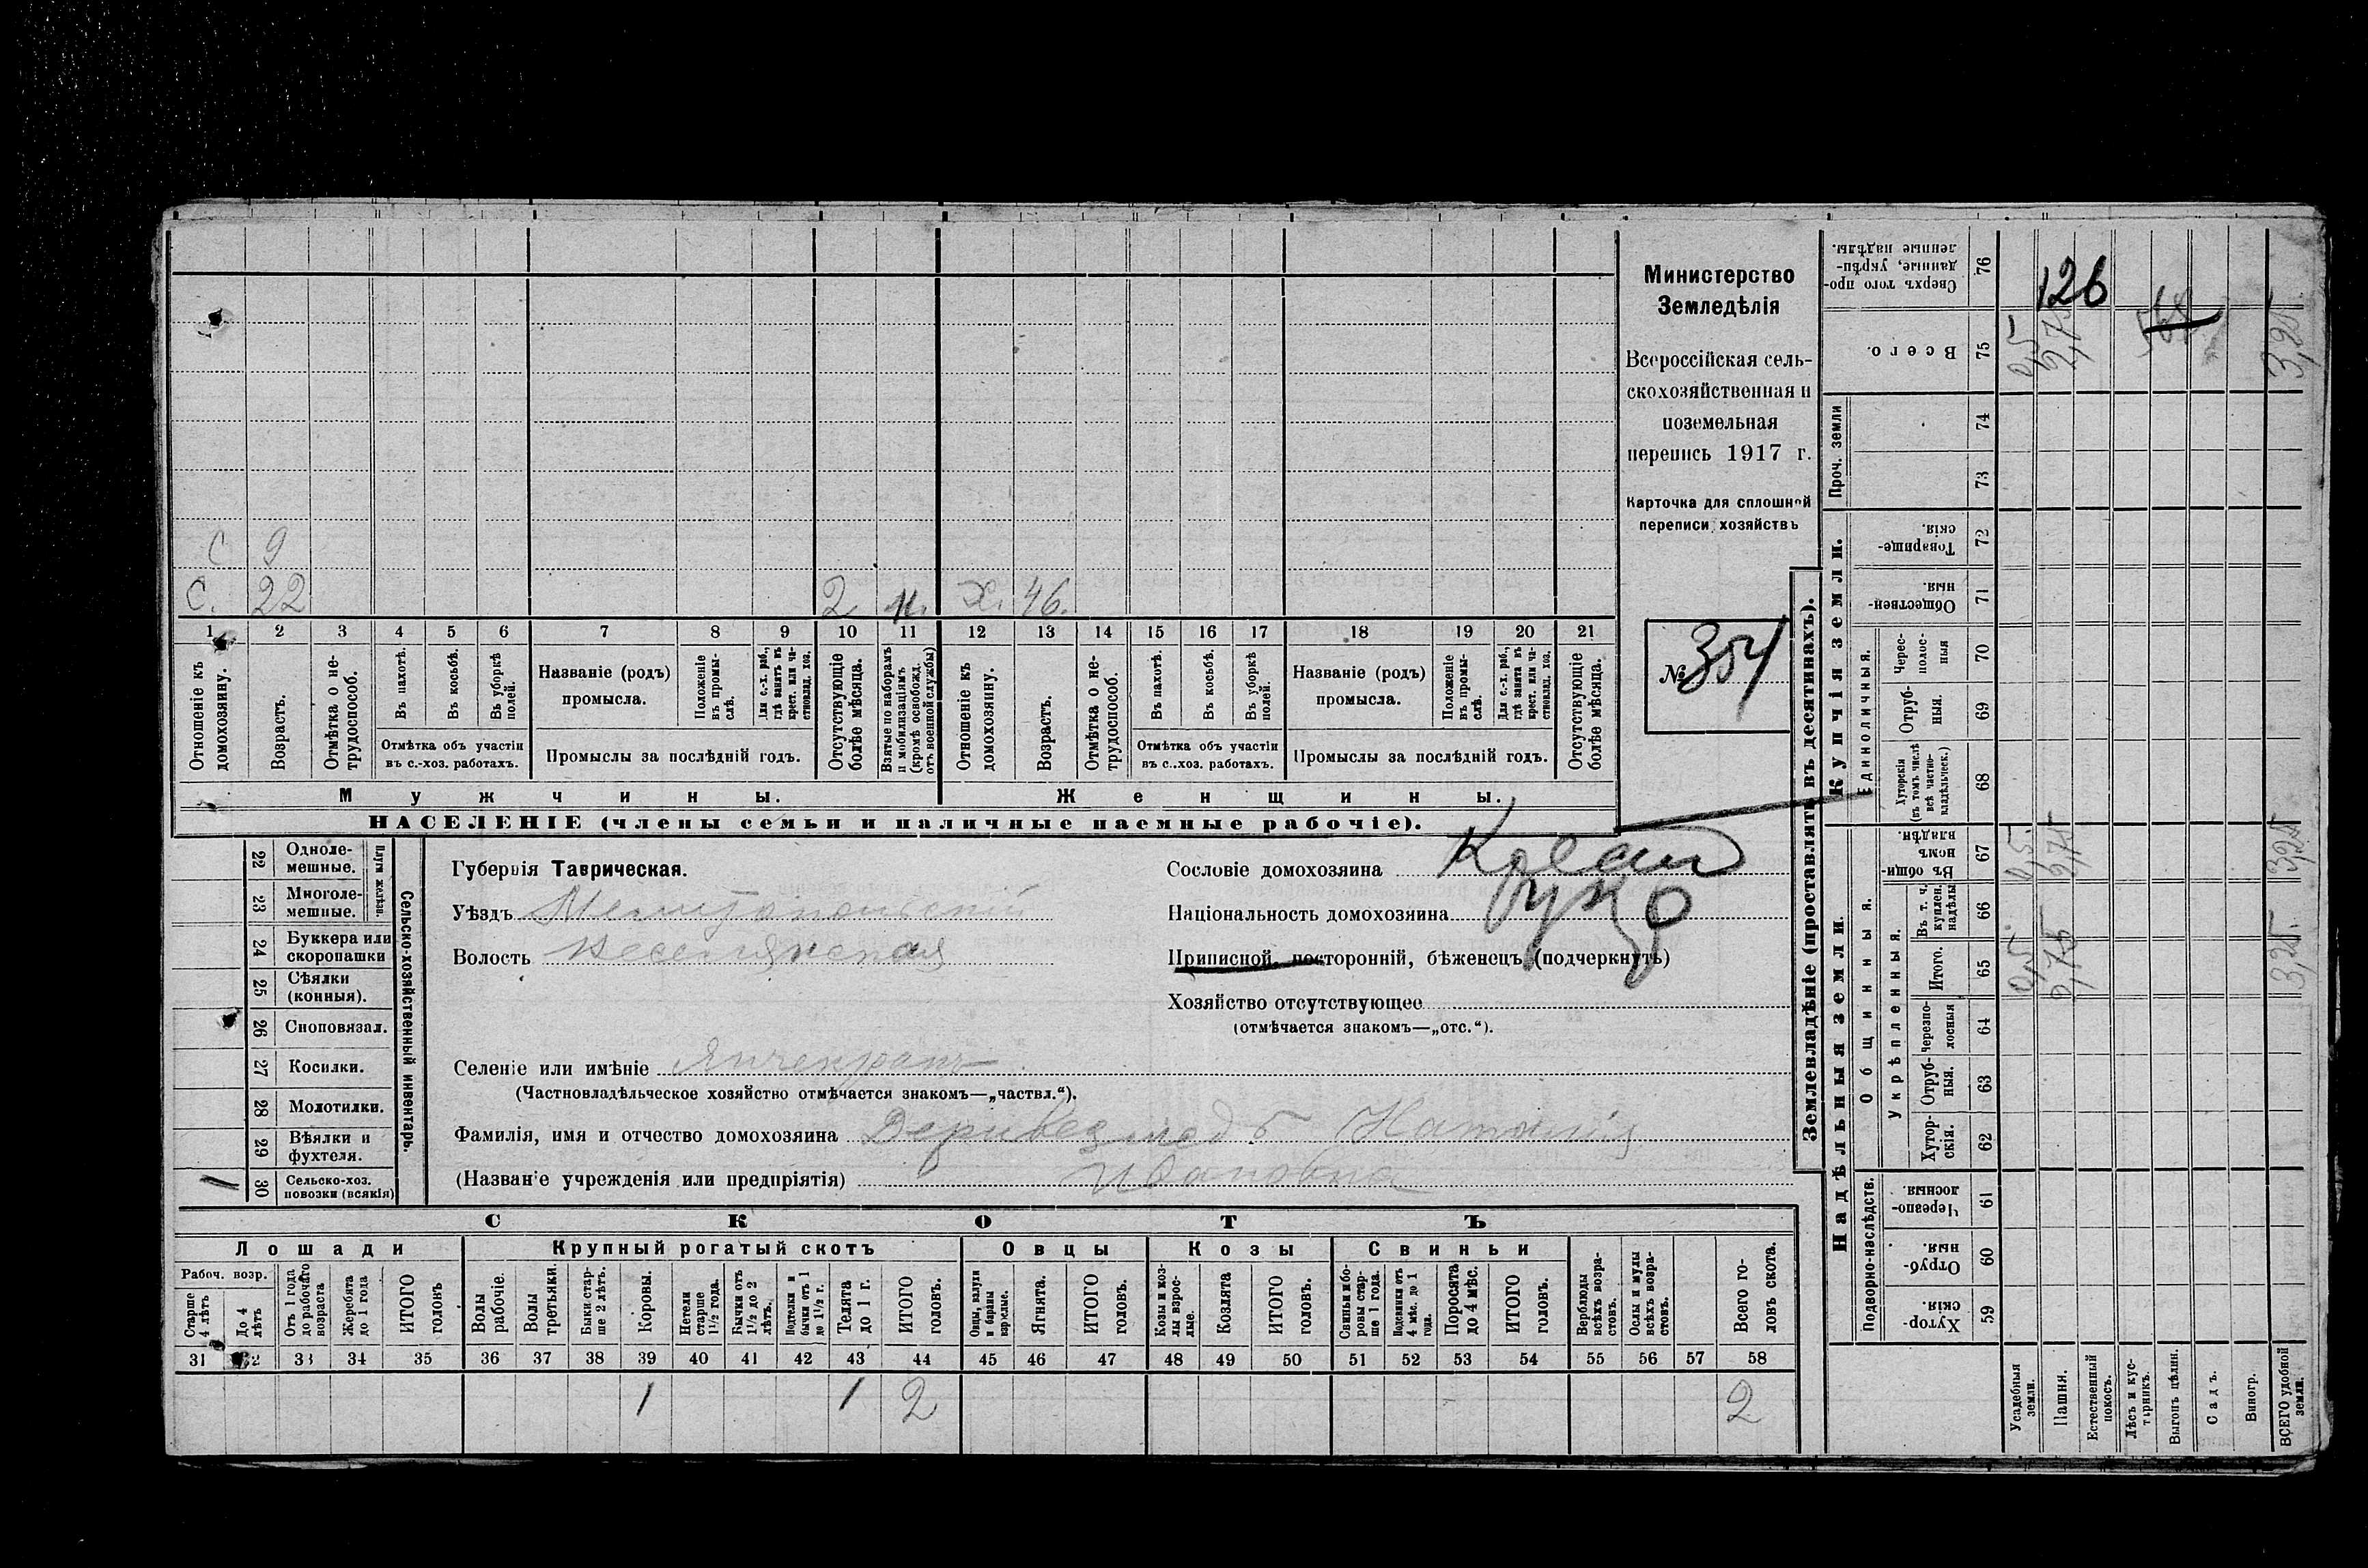 Министерство
Земледѣлія
Всероссійская сель-
скохозяйственная и
поземельная
перепись 1917 г.
Карточка для сплошной
переписи хозяйствъ
№ 354
С 9
С. 22 2 Х. 46.
1 2 3 4 5 6 7 8 9 10 11 12 13 14 15 16 17 18 19 20 21
Отношеніе къ домохозяину.
Возрастъ.
Отмѣтка о не-трудоспособ.
Въ пахотѣ.
Въ косьбѣ.
Въ уборкѣ полей.
Отмѣтка объ участіи
въ с.-хоз. работахъ.
Названіе (родъ)
промысла.
Положеніе въ промы-слѣ.
Для с.-х. раб., гдѣ занятъ въ крест. или ча-стновлад. хоз.
Промыслы за послѣдній годъ.
Отсутствующіе болѣе мѣсяца.
Взятые по наборамъ и мобилизаціямъ (кромѣ освобожд. отъ военной службы)
Отношеніе къ домохозяину.
Возрастъ.
Отмѣтка о не-трудоспособ.
Въ пахотѣ.
Въ косьбѣ.
Въ уборкѣ полей.
Отмѣтка объ участіи
въ с.-хоз. работахъ.
Названіе (родъ)
промысла.
Положеніе въ промы-слѣ.
Для с.-х. раб., гдѣ занята въ крест. или ча-стновлад. хоз.
Промыслы за послѣдній годъ.
Отсутствующіе болѣе мѣсяца.
Мужчины. Женщины.
НАСЕЛЕНІЕ (члены семьи и наличные наемные рабочіе).
22 Одноле-мешные.
23 Многоле-мешные.
Плуги желѣзн.
24 Буккера или скоропашки
25 Сѣялки (конныя).
26 Сноповязал.
27 Косилки.
28 Молотилки.
29 Вѣялки и фухтеля.
1 30 Сельско-хоз. повозки (всякія)
Сельско-хозяйственный инвентарь.
Губернія Таврическая.
Уѣздъ Мелитопольскій
Волость Веселянская
Селеніе или имѣніе Янчекракъ
(Частновладѣльческое хозяйство отмѣчается знакомъ—„частвл.“).
Фамилія, имя и отчество домохозяина Наталія
(Названіе учрежденія или предпріятія) Ивановна
Сословіе домохозяина
Національность домохозяина
Приписной, посторонній, бѣженецъ (подчеркнуть)
Хозяйство отсутствующее
(отмѣчается знакомъ—„отс.“).
СКОТЪ
Лошади
Рабоч. возр.
Старше 4 лѣтъ
До 4 лѣтъ
Отъ 1 года до рабочаго возраста
Жеребята до 1 года
ИТОГО головъ
Крупный рогатый скотъ
Волы рабочіе.
Волы третьяки.
Быки стар-ше 2 лѣтъ.
Коровы.
Нетели старше 1½ года.
Бычки отъ 1½ до 2 лѣтъ.
Подтелки и бычки отъ 1 до 1½ г.
Телята до 1 г.
ИТОГО головъ.
Овцы
Овцы, валухи и бараны взрослые.
Ягнята.
ИТОГО головъ.
Козы
Козы и коз-лы взрос-лые.
Козлята
ИТОГО головъ.
Свиньи
Свиньи и бо-ровы стар-ше 1 года.
Подсвинки отъ 4 мѣс. до 1 года.
Поросята до 4 мѣс.
ИТОГО головъ.
Верблюды всѣхъ возра-стовъ.
Ослы и мулы всѣхъ возра-стовъ.
Всего го-ловъ скота.
31 32 33 34 35 36 37 38 39 40 41 42 43 44 45 46 47 48 49 50 51 52 53 54 55 56 57 58
1 1 2 2
Землевладѣніе (проставлять въ десятинахъ).
Надѣльныя земли.
Подворно-наслѣдств.
Хутор-скія. 59
Отруб-ныя. 60
Черезпо-лосныя. 61
Общинныя.
Укрѣпленныя.
Хутор-скія. 62
Отруб-ныя. 63
Черезпо-лосныя 64
Итого. 65 0,5 2,75 3,25
Въ т. ч. куплен. надѣлы 66
Въ общин-номъ владѣн. 67 0,5 2,75 3,25
Купчія земли.
Единоличныя.
Хуторскія (въ томъ числѣ всѣ частно-владѣльческ.) 68
Отруб-ныя. 69
Черес-полос-ныя 70
Обществен-ныя 71
Товарище-скія. 72
Проч. земли
73
74
Всего. 75 0,5 2,75 3,25
Сверхъ того про-данные, укрѣп-ленные надѣлы. 76
126
Усадебныя земли.
Пашня.
Естественный покосъ.
Лѣсъ и кус-тарникъ.
Выгонъ цѣлин.
Садъ.
Виногр.
ВСЕГО удобной земли.